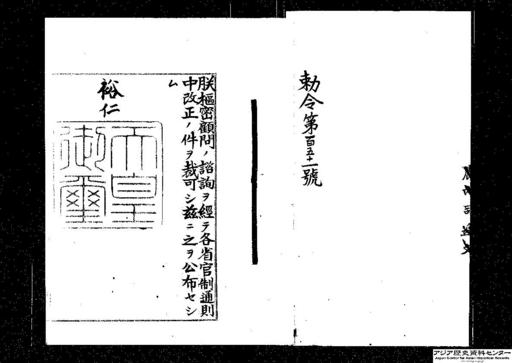 勅令第百五十一號
朕樞密顧問ノ諮詢ヲ經テ各省官制通則
中改正ノ件ヲ裁可シ茲ニ之ヲ公布セシ
ム
裕仁
天皇
御璽
アジア歴史資料センター
Japan Center for Asian Historical Records